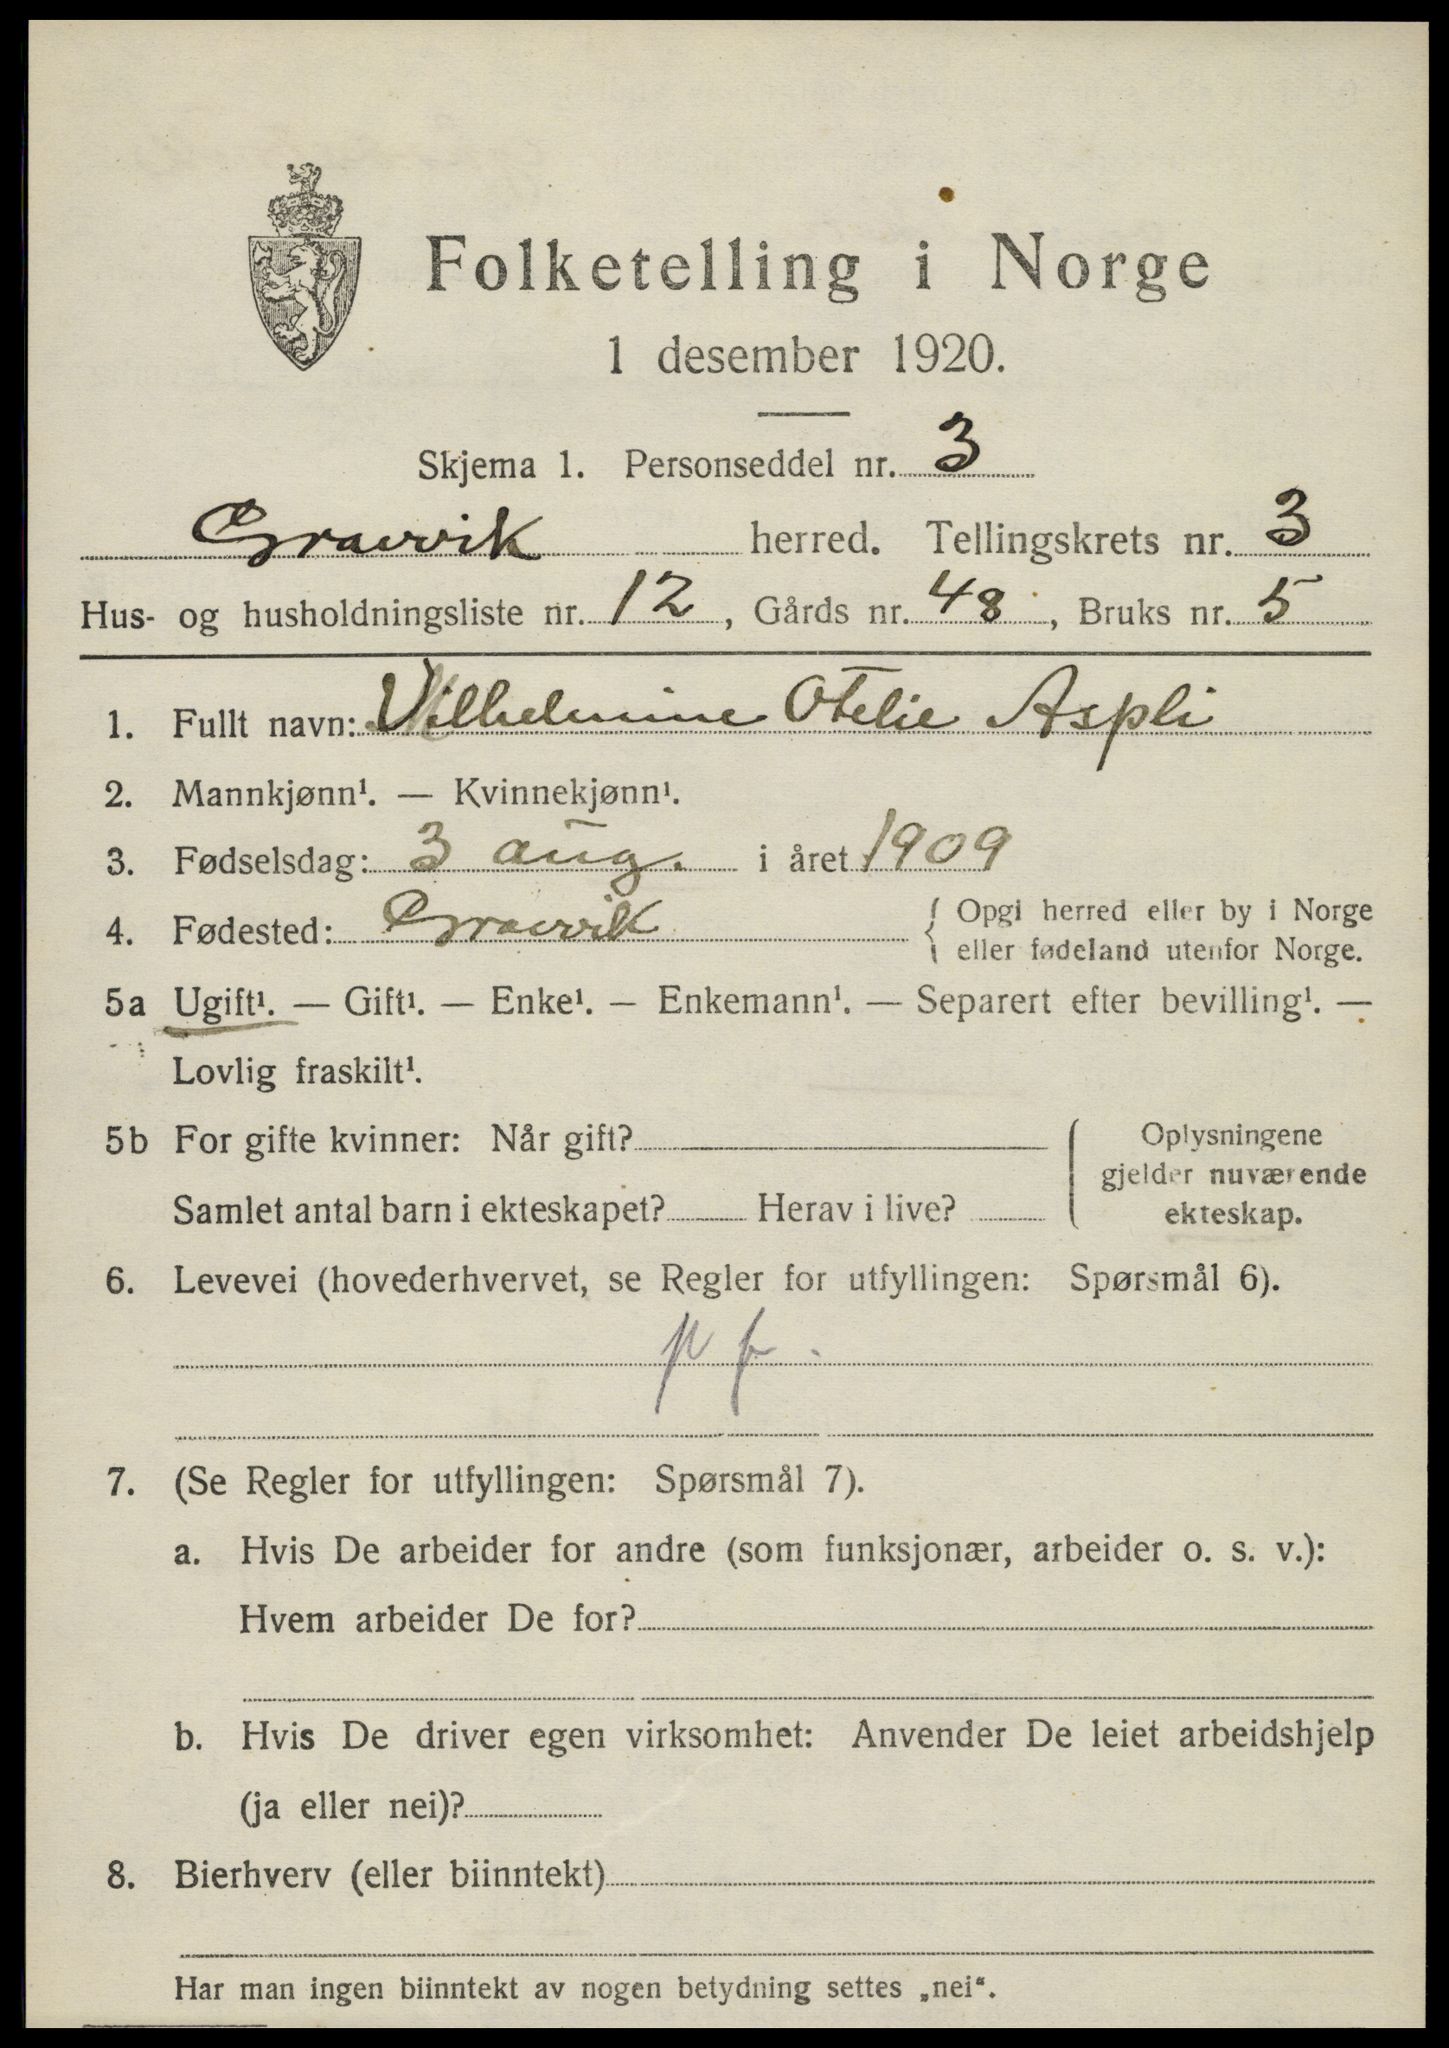 Folketelling i Norge
1 desember 1920.
Skjema 1. Personseddel nr. 3
Gravvik herred. Tellingskrets nr. 3
Hus- og husholdningsliste nr. 12, Gårds nr. 48, Bruks nr. 5
1. Fullt navn: Vilhelmine Otelie Aspli
2. Mannkjønn¹. — Kvinnekjønn¹.
3. Fødselsdag: 3 aug. i året 1909
4. Fødested: Gravvik { Opgi herred eller by i Norge
eller fødeland utenfor Norge.
5a Ugift¹. — Gift¹. — Enke¹. — Enkemann¹. — Separert efter bevilling¹. —
Lovlig fraskilt¹.
5b For gifte kvinner: Når gift?
Samlet antal barn i ekteskapet? Herav i live?
Oplysningene
gjelder nuværende
ekteskap.
6. Levevei (hovederhvervet, se Regler for utfyllingen: Spørsmål 6).
7. (Se Regler for utfyllingen: Spørsmål 7).
a. Hvis De arbeider for andre (som funksjonær, arbeider o. s. v.):
Hvem arbeider De for?
b. Hvis De driver egen virksomhet: Anvender De leiet arbeidshjelp
(ja eller nei)?
8. Bierhverv (eller biinntekt)
Har man ingen biinntekt av nogen betydning settes „nei“.